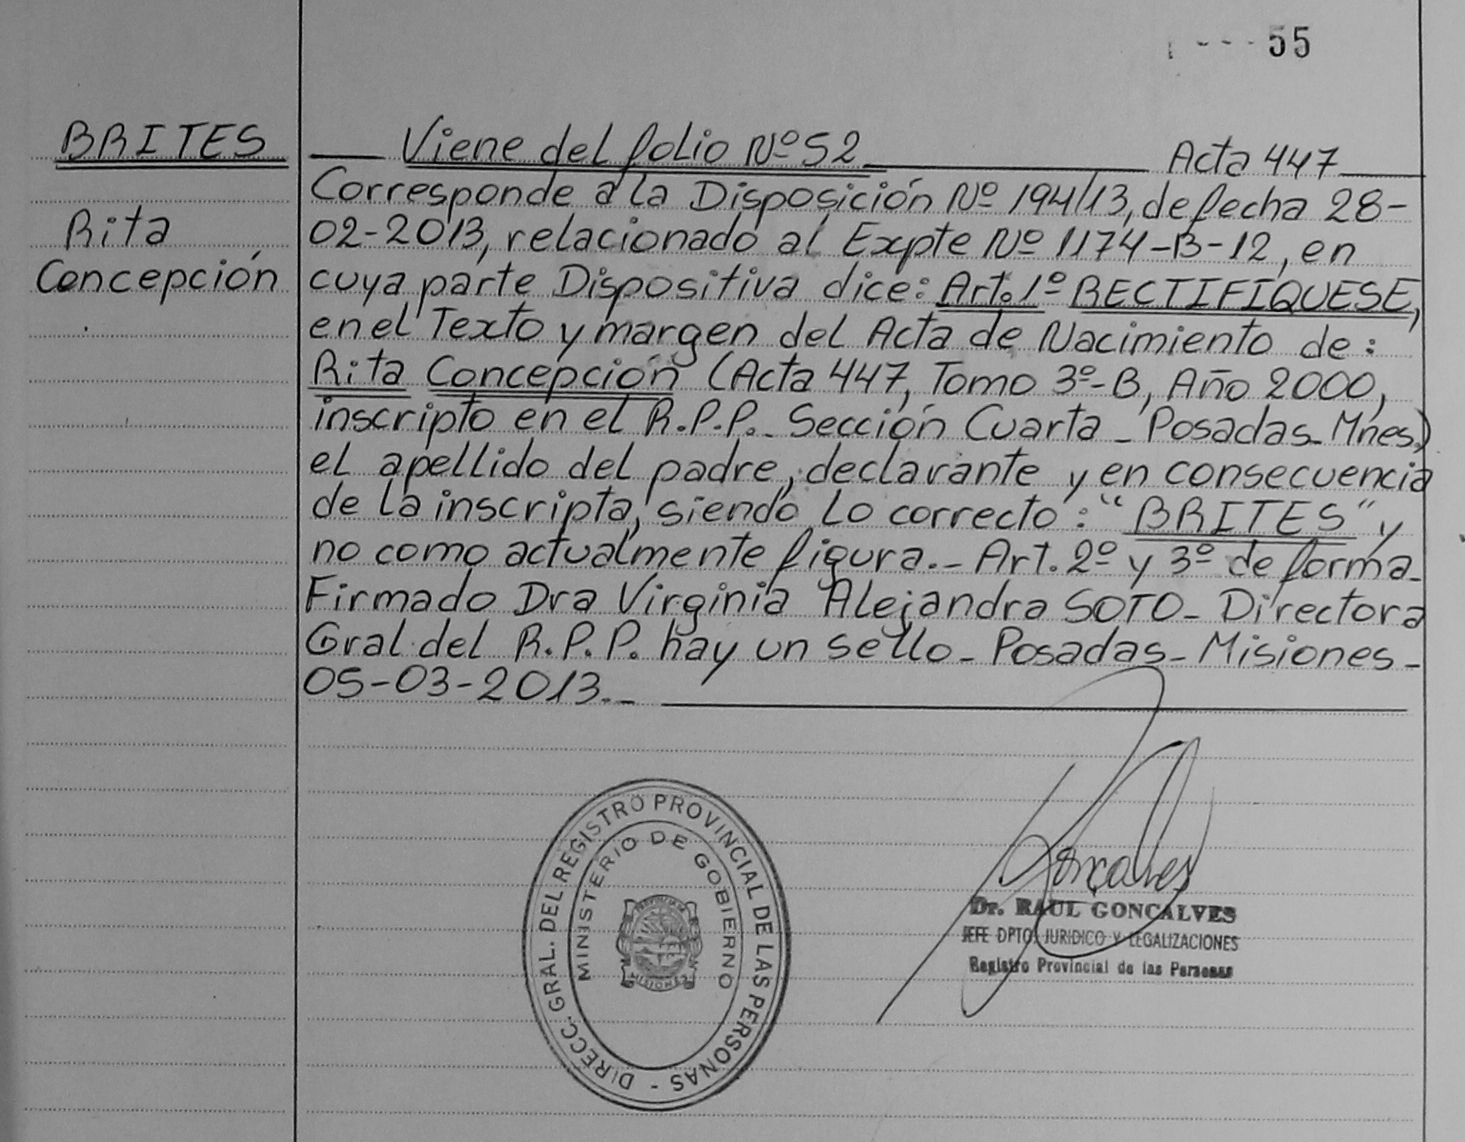 55
BRITES
Rita
Concepción
Viene del folio Nº 52 Acta 447
Corresponde a la Disposición Nº 194/13, de fecha 28-
02-2013, relacionado al Expte Nº 1174-B-12, en
cuya parte Dispositiva dice: Art. 1º RECTIFIQUESE,
en el Texto y margen del Acta de Nacimiento de:
Rita Concepción (Acta 447, Tomo 3º-B, Año 2000,
inscripto en el R.P.P. - Sección Cuarta - Posadas - Mnes.)
el apellido del padre, declarante y en consecuencia
de la inscripta, siendo lo correcto: "BRITES" y
no como actualmente figura.- Art. 2º y 3º de forma-
Firmado Dra Virginia Alejandra SOTO - Directora
Gral. del R.P.P. hay un sello - Posadas - Misiones -
05-03-2013.-
DIRECC. GRAL. DEL REGISTRO PROVINCIAL DE LAS PERSONAS -
MINISTERIO DE GOBIERNO
MISIONES
Goncalves
Dr. RAUL GONCALVES
JEFE DPTO. JURIDICO Y LEGALIZACIONES
Registro Provincial de las Personas